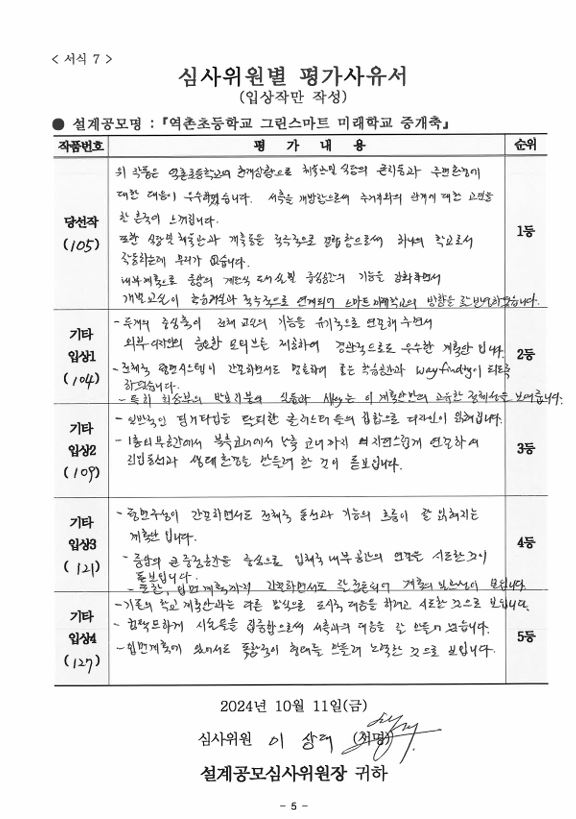 < 서식 7 >
심사위원별 평가사유서
(입상작만 작성)
● 설계공모명 : 『역촌초등학교 그린스마트 미래학교 증개축』
작품번호 평 가 내 용 순위
당선작
(105)
위 작품은 역촌초등학교의
대한 대응이 우수하였습니다. 서측을 개방함으로써 주거지와의 관계에 대한 고민을
한 흔적이 느껴집니다.
또한 식당및 체육관과 적극적으로 하나의 학교로서
작동하는데 무리가 없습니다.
내부계획으로 중앙의 계단식 도서실및 중심공간의 기능을 강화하면서
개별교실이 적극적으로 연계되어 스마트미래학교의 방향을 잘 반영하였습니다.
1등
기타
입상1
(104)
- 두개의 중심축이 전체 교실의 기능을 유기적으로 연결해 주면서
외부 디자인의 중요한 모티브를 제공하여 경관적으로도 우수한 계획안 입니다.
- 전체적 평면시스템이 간결하면서도 모든 학습공간과 wayfinding이 되도록
하였습니다.
- 특히 최상부의 식당과 이 계획안만의 고유한 정체성을 보여줍니다.
2등
기타
입상2
(109)
- 일반적인 클러스터 등의 집합으로 디자인이 읽혀집니다.
- 1층 외부공간에서 북측 남측 자연스럽게 연결하여
진입동선과 생태환경을 만들려 한 것이 돋보입니다.
3등
기타
입상3
(121)
- 평면구성이 간결하면서도 전체적 동선과 기능의 흐름이 잘 읽혀지는
계획안 입니다.
- 중앙의 중심으로 입체적 내부공간의 연결을 시도한 것이
돋보입니다.
- 또한, 입면계획까지 간결하면서도 잘 정돈되어 계획의 보입니다.
4등
기타
입상4
(127)
- 기존의 학교계획안과는 다른 방식으로 도시적 대응을 하려고 시도한 것으로 보입니다.
- 컴팩트하게 시설물을 집중함으로써 서측과의 대응을 잘 만들어 냈습니다.
- 입면계획에 있어서도 독창적인 형태를 만들려 노력한 것으로 보입니다.
5등
2024년 10월 11일(금)
심사위원 이 상대 (서명)
설계공모심사위원장 귀하
- 5 -